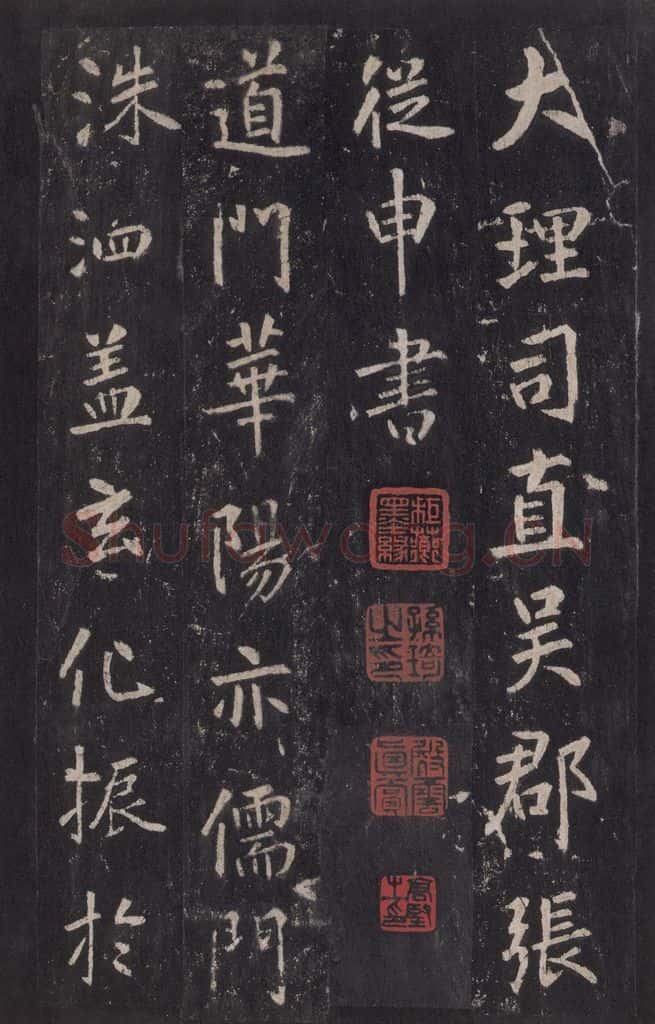 大理司直吴郡張
從申書
道門華陽亦儒門
洙泗盖玄化振於
Shufawang.CN